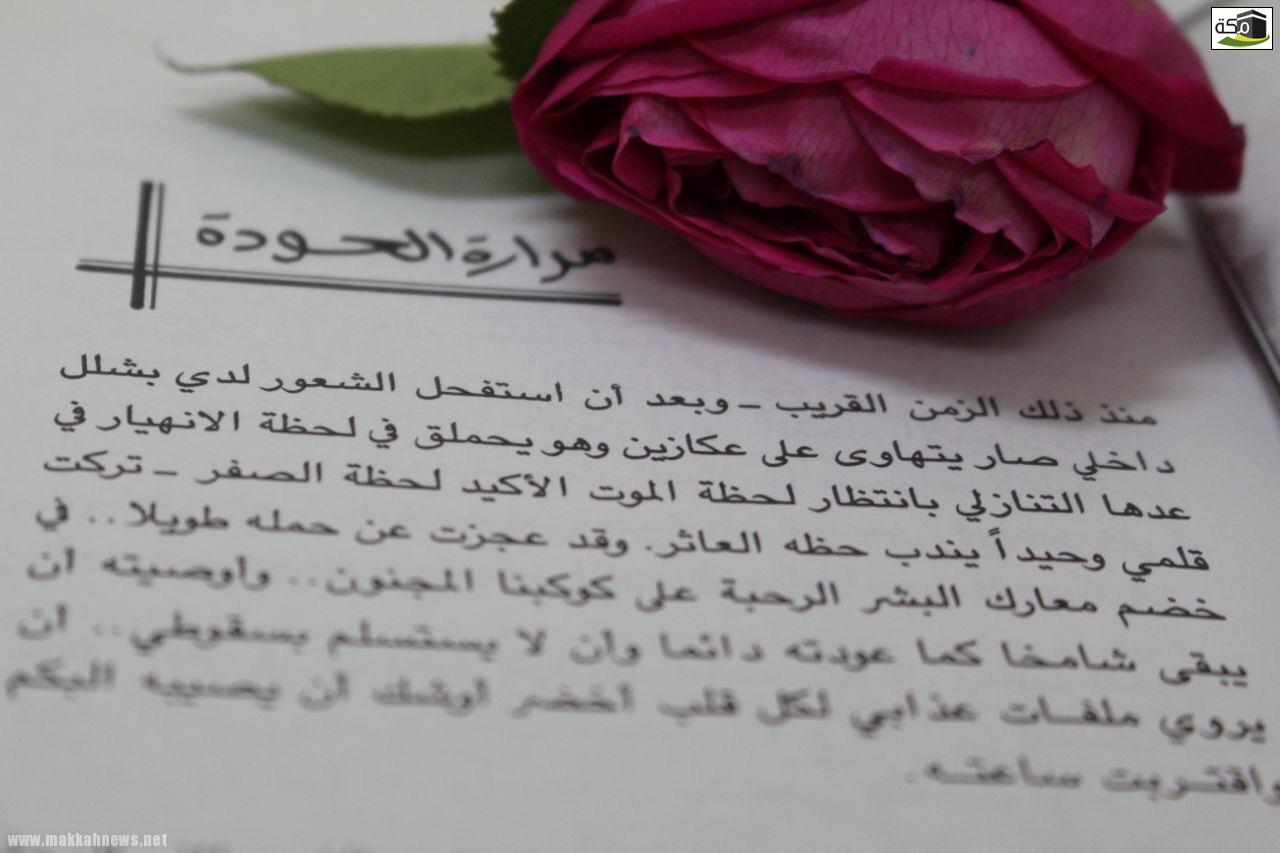 مكة
مرارة العودة
منذ ذلك الزمن القريب – وبعد أن استفحل الشعور لدي بشلل
داخلي صار يتهاوى على عكازين وهو يحملق في لحظة الانهيار في
عدها التنازلي بانتظار لحظة الموت الأكيد لحظة الصفر – تركت
قلمي وحيداً يندب حظه العاثر. وقد عجزت عن حمله طويلا.. في
خضم معارك البشر الرحبة على كوكبنا المجنون.. وأوصيته أن
يبقى شامخا كما عودته دائما وأن لا يستسلم بسقوطي.. أن
يروي ملفات عذابي لكل قلب أخضر أوشك أن يصيبه البكم
واقتربت ساعته.
www.makkahnews.net